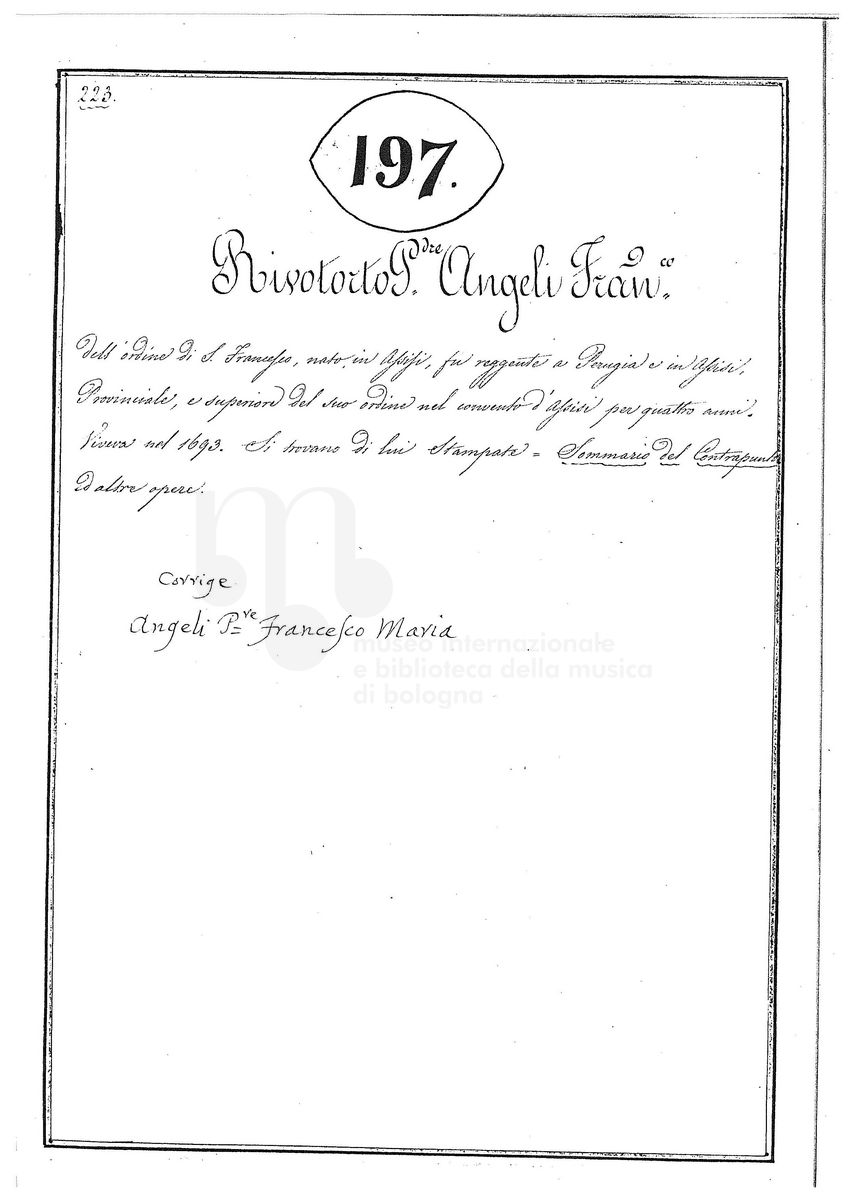 223.
197.
Rivotorto P.dre Angeli Fran.co
Dell'ordine di S. Francesco, nato in Assisi, fu reggente a Perugia e in Assisi,
Provinciale, e superiore del suo ordine nel convento d'Assisi per quattro anni.
Viveva nel 1693. Si trovano di lui stampate = Sommario del Contrapunto
ed altre opere.
Corrige
Angeli P.re Francesco Maria
museo internazionale
e biblioteca della musica
di bologna